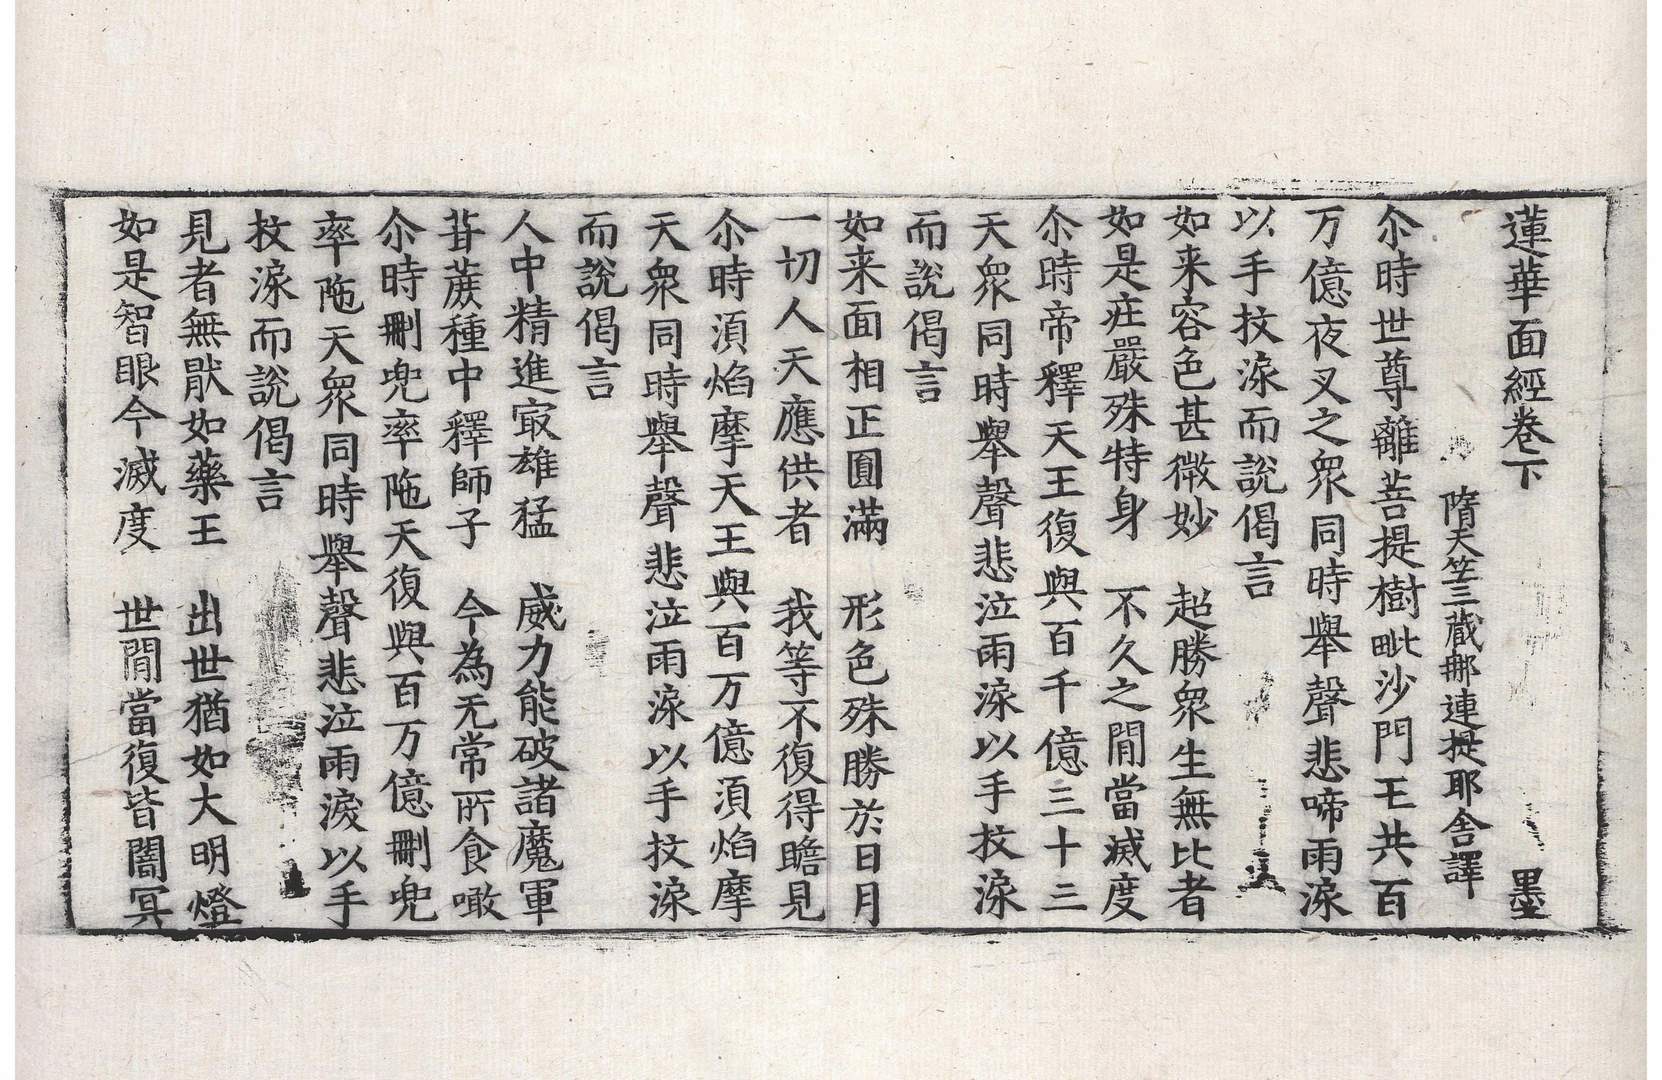 蓮華面經卷下　墨
隋天竺三藏那連提耶舎譯
尒時世尊離菩提樹毗沙門王共百
万億夜叉之衆同時舉聲悲啼雨淚
以手抆淚而說偈言
如来容色甚微妙　超勝衆生無比者
如是庄嚴殊特身　不久之閒當滅度
尒時帝釋天王復與百千億三十三
天衆同時舉聲悲泣雨淚以手抆淚
而說偈言
如来面相正圓滿　形色殊勝於日月
一切人天應供者　我等不復得瞻見
尒時須焰摩天王與百万億須焰摩
天衆同時舉聲悲泣雨淚以手抆淚
而說偈言
人中精進㝡雄猛　威力能破諸魔軍
甘蔗種中釋師子　今為无常所食噉
尒時刪兜率陁天復與百万億刪兜
率陁天衆同時舉聲悲泣雨淚以手
抆淚而說偈言
見者無猒如藥王　出世猶如大明燈
如是智眼今滅度　世閒當復皆闇冥